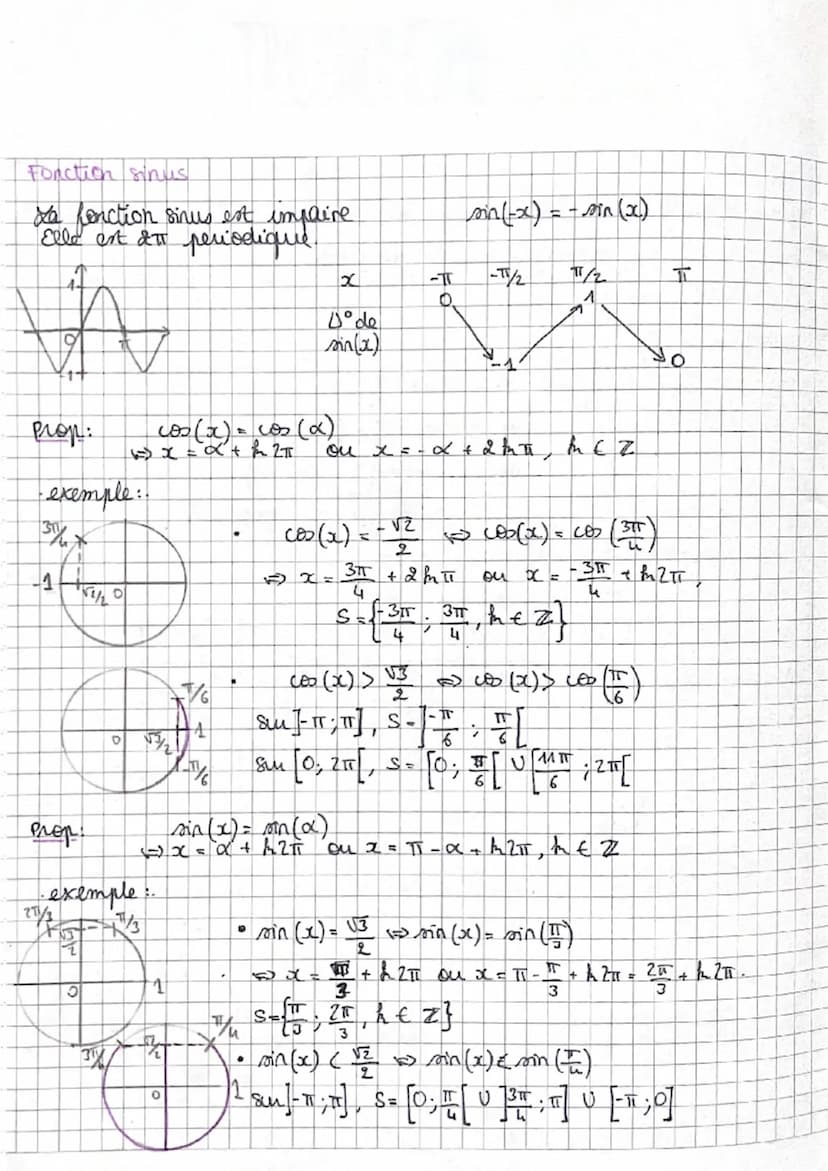 Fonction sinus
La fonction sinus est impaire sin(-x) = -sin(x)
Elle est 2π periodique.
x -π -π/2 π/2 π
1 0 1
V° de
sin(x)
0 π
-1 -1 0
Prop: cos(x) = cos(α)
⇔ x = α + k2π ou x = -α + 2kπ, k ∈ Z
• exemple:
3π/4 • cos(x) = -√2/2 ⇔ cos(x) = cos(3π/4)
-1 √2/2 0 ⇔ x = 3π/4 + 2kπ ou x = -3π/4 + k2π,
S = {-3π/4 ; 3π/4, k ∈ Z}
π/6 • cos(x) > √3/2 ⇔ cos(x) > cos(π/6)
0 √3/2 1 sur ]-π;π], S = ]-π/6 ; π/6[
-π/6 sur [0; 2π[, S = [0; π/6[ U [11π/6 ; 2π[
Prop: sin(x) = sin(α)
⇔ x = α + k2π ou x = π - α + k2π, k ∈ Z
• exemple:
2π/3 √3/2 π/3 • sin(x) = √3/2 ⇔ sin(x) = sin(π/3)
0 1 ⇔ x = π/3 + k2π ou x = π - π/3 + k2π = 2π/3 + k2π.
S = {π/3 ; 2π/3, k ∈ Z}
3π/4 π/4 • sin(x) < √2/2 ⇔ sin(x) < sin(π/4)
0 1 sur ]-π;π], S = [0; π/4[ U ]3π/4 ; π] U [-π ; 0]